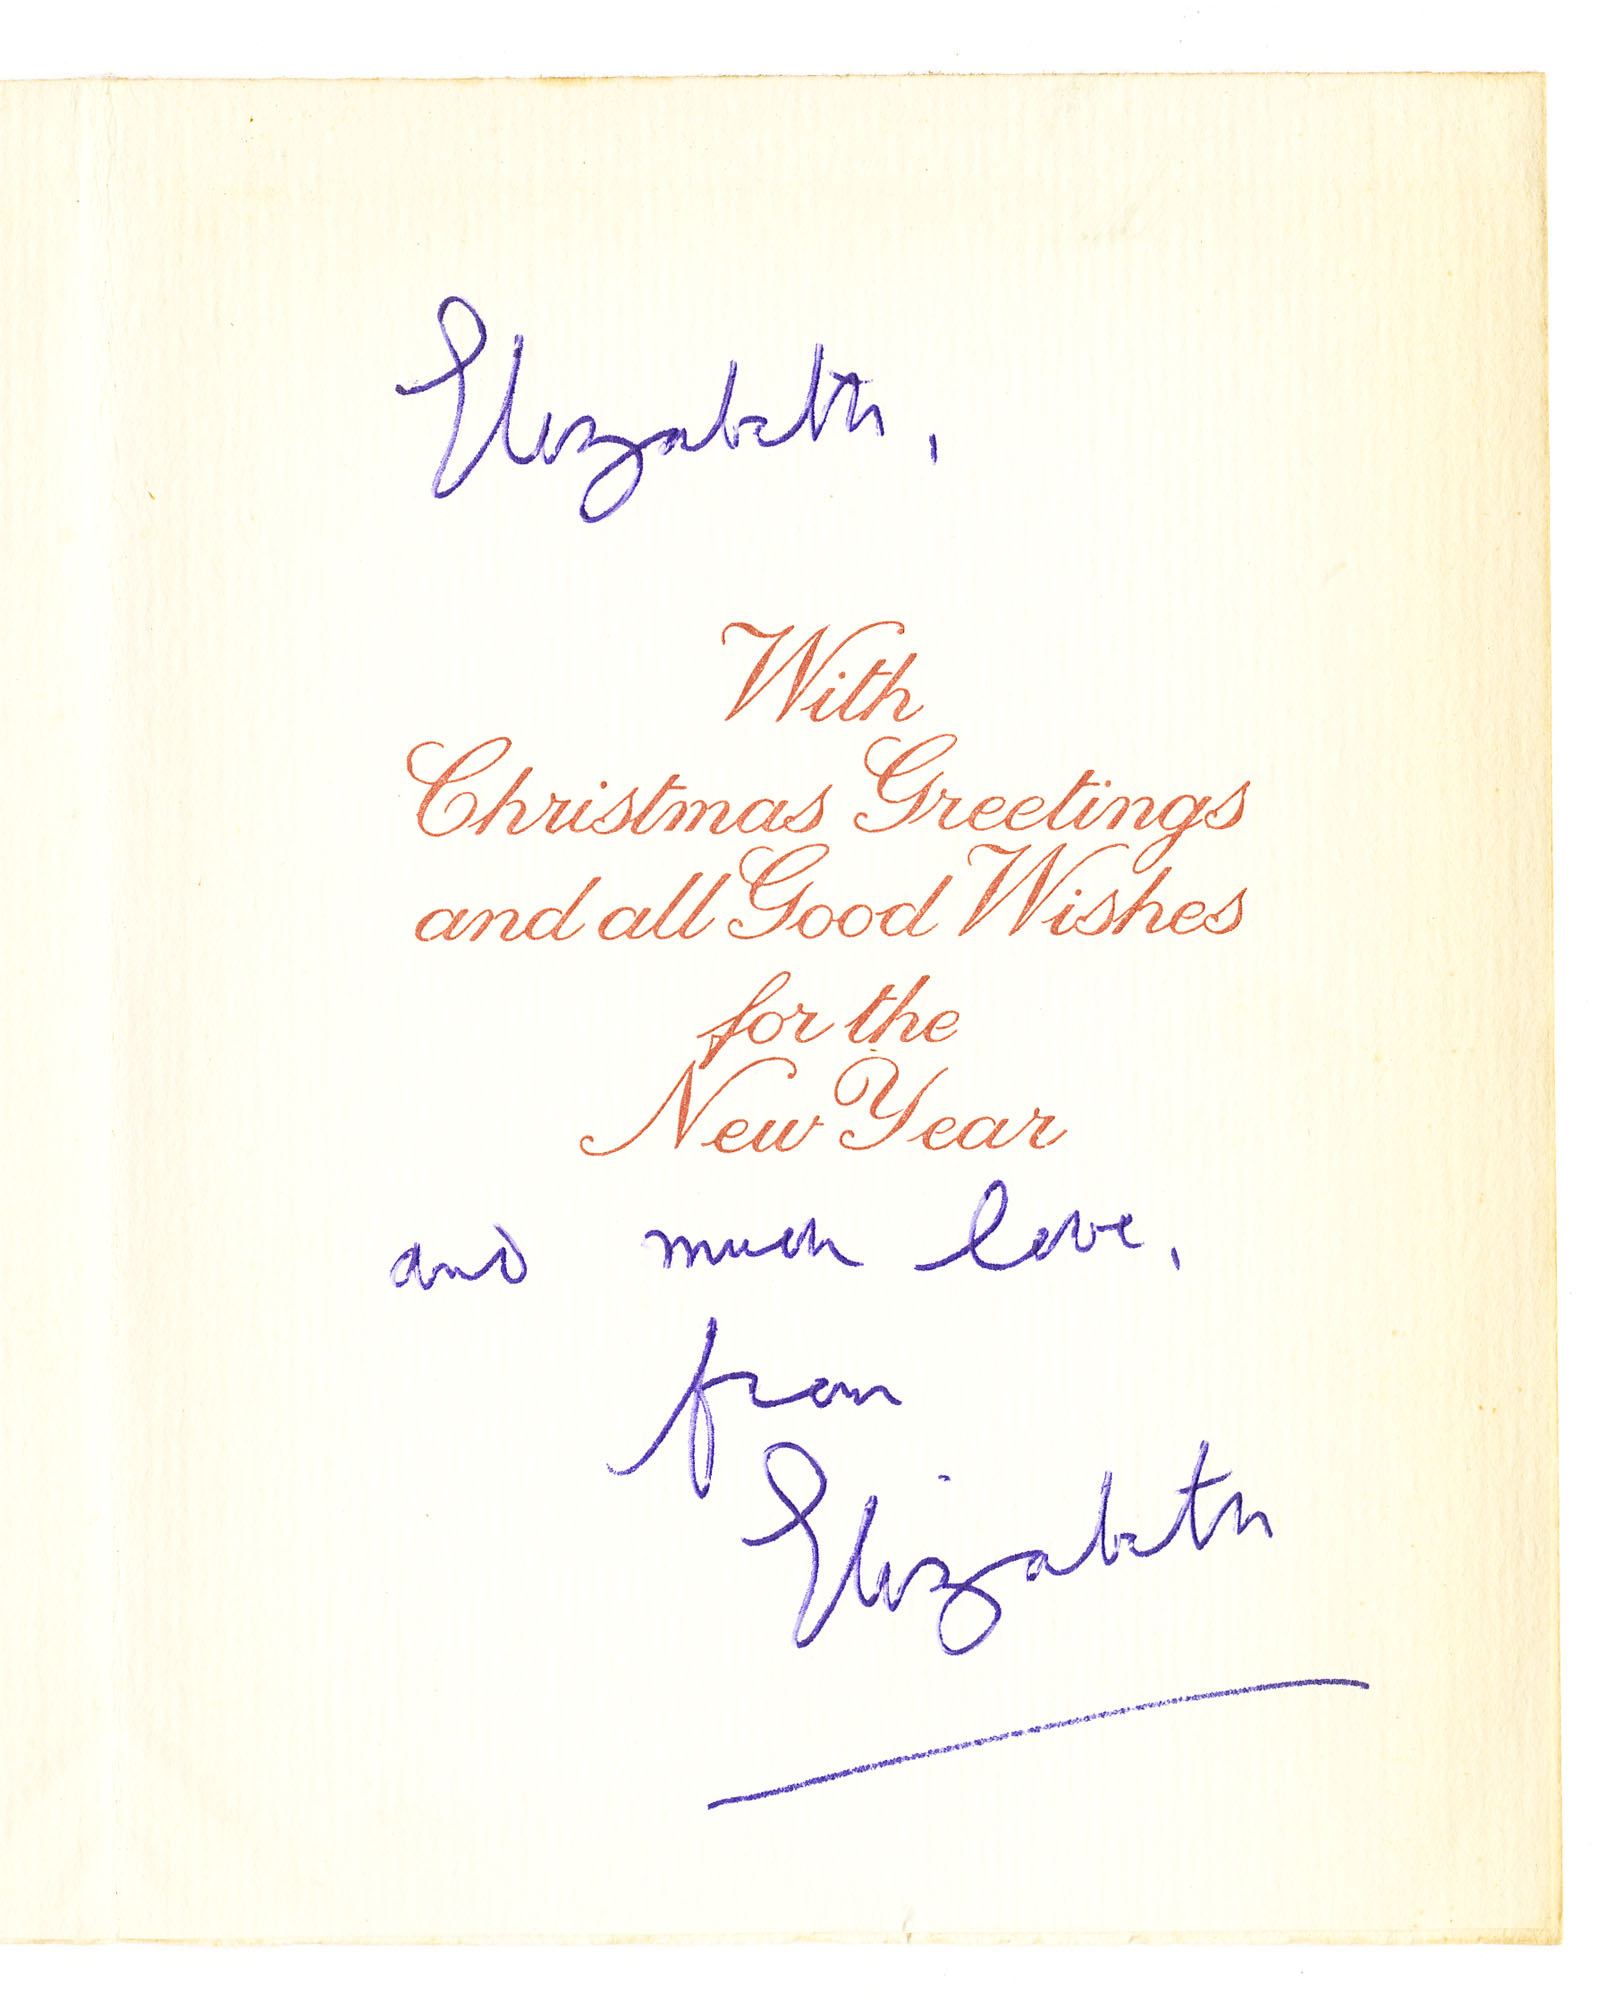 Elizabeth,
With
Christmas Greetings
and all Good Wishes
for the
New Year
and much love,
from
Elizabeth